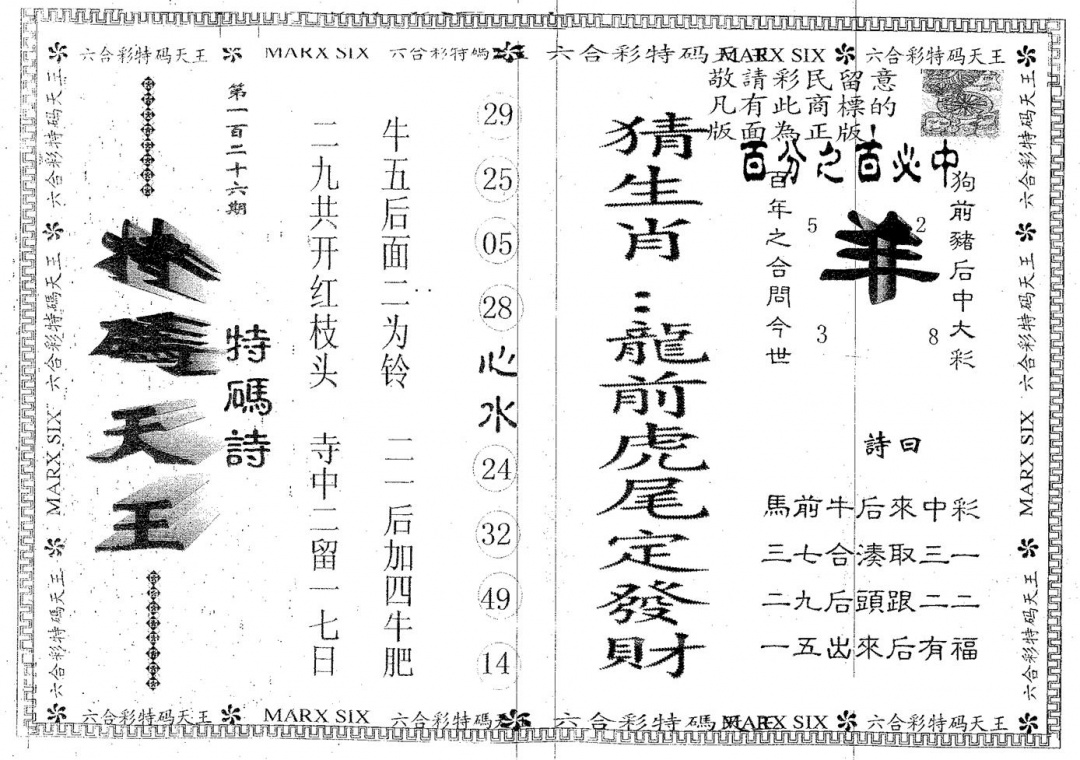 六合彩特码天王 MARX SIX 六合彩特碼 六合彩特码 MARX SIX 六合彩特码天王
敬請彩民留意
凡有此商標的
版面為正版!
百分之百必中
狗前豬后中大彩
羊
5
2
3
8
百年之合問今世
詩曰
馬前牛后來中彩
三七合湊取三一
二九后頭跟二二
一五出來后有福
猜生肖:龍前虎尾定發財
29
25
05
28
心水
24
32
49
14
牛五后面二为铃 二一后加四牛肥
二九共开红枝头 寺中二留一七日
特碼詩
第一百二十六期
特碼天王
六合彩特码天王 MARX SIX 六合彩特码天王 六合彩特码天王
六合彩特码天王 六合彩特码天王 MARX SIX 六合彩特码天王
六合彩特码天王 MARX SIX 六合彩特碼 六合彩特碼 MARX SIX 六合彩特码天王